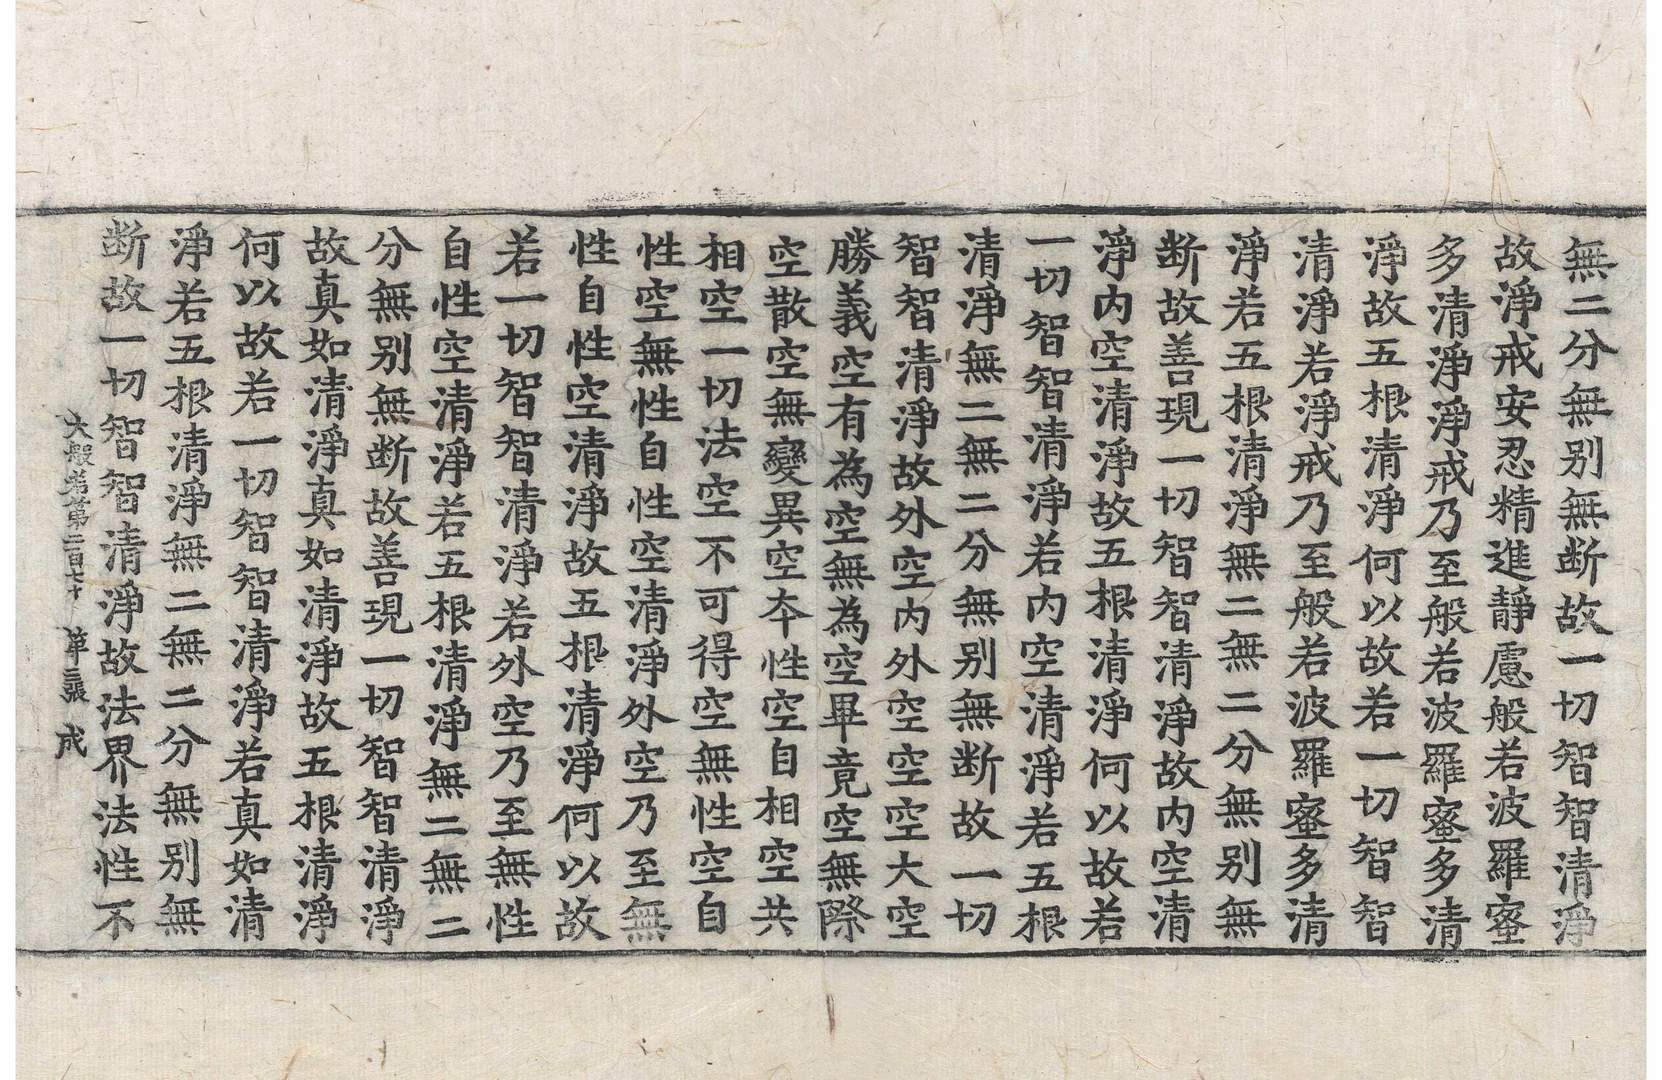 無二分無別無断故一切智智清淨
故淨戒安忍精進靜慮般若波羅蜜
多清淨淨戒乃至般若波羅蜜多清
淨故五根清淨何以故若一切智智
清淨若淨戒乃至般若波羅蜜多清
淨若五根清淨無二無二分無別無
断故善現一切智智清淨故内空清
淨内空清淨故五根清淨何以故若
一切智智清淨若内空清淨若五根
清淨無二無二分無別無断故一切
智智清淨故外空内外空空空大空
勝義空有為空無為空畢竟空無際
空散空無變異空夲性空自相空共
相空一切法空不可得空無性空自
性空無性自性空清淨外空乃至無
性自性空清淨故五根清淨何以故
若一切智智清淨若外空乃至無性
自性空清淨若五根清淨無二無二
分無別無断故善現一切智智清淨
故真如清淨真如清淨故五根清淨
何以故若一切智智清淨若真如清
淨若五根清淨無二無二分無別無
断故一切智智清淨故法界法性不
大般若第二百七十 第三張 成